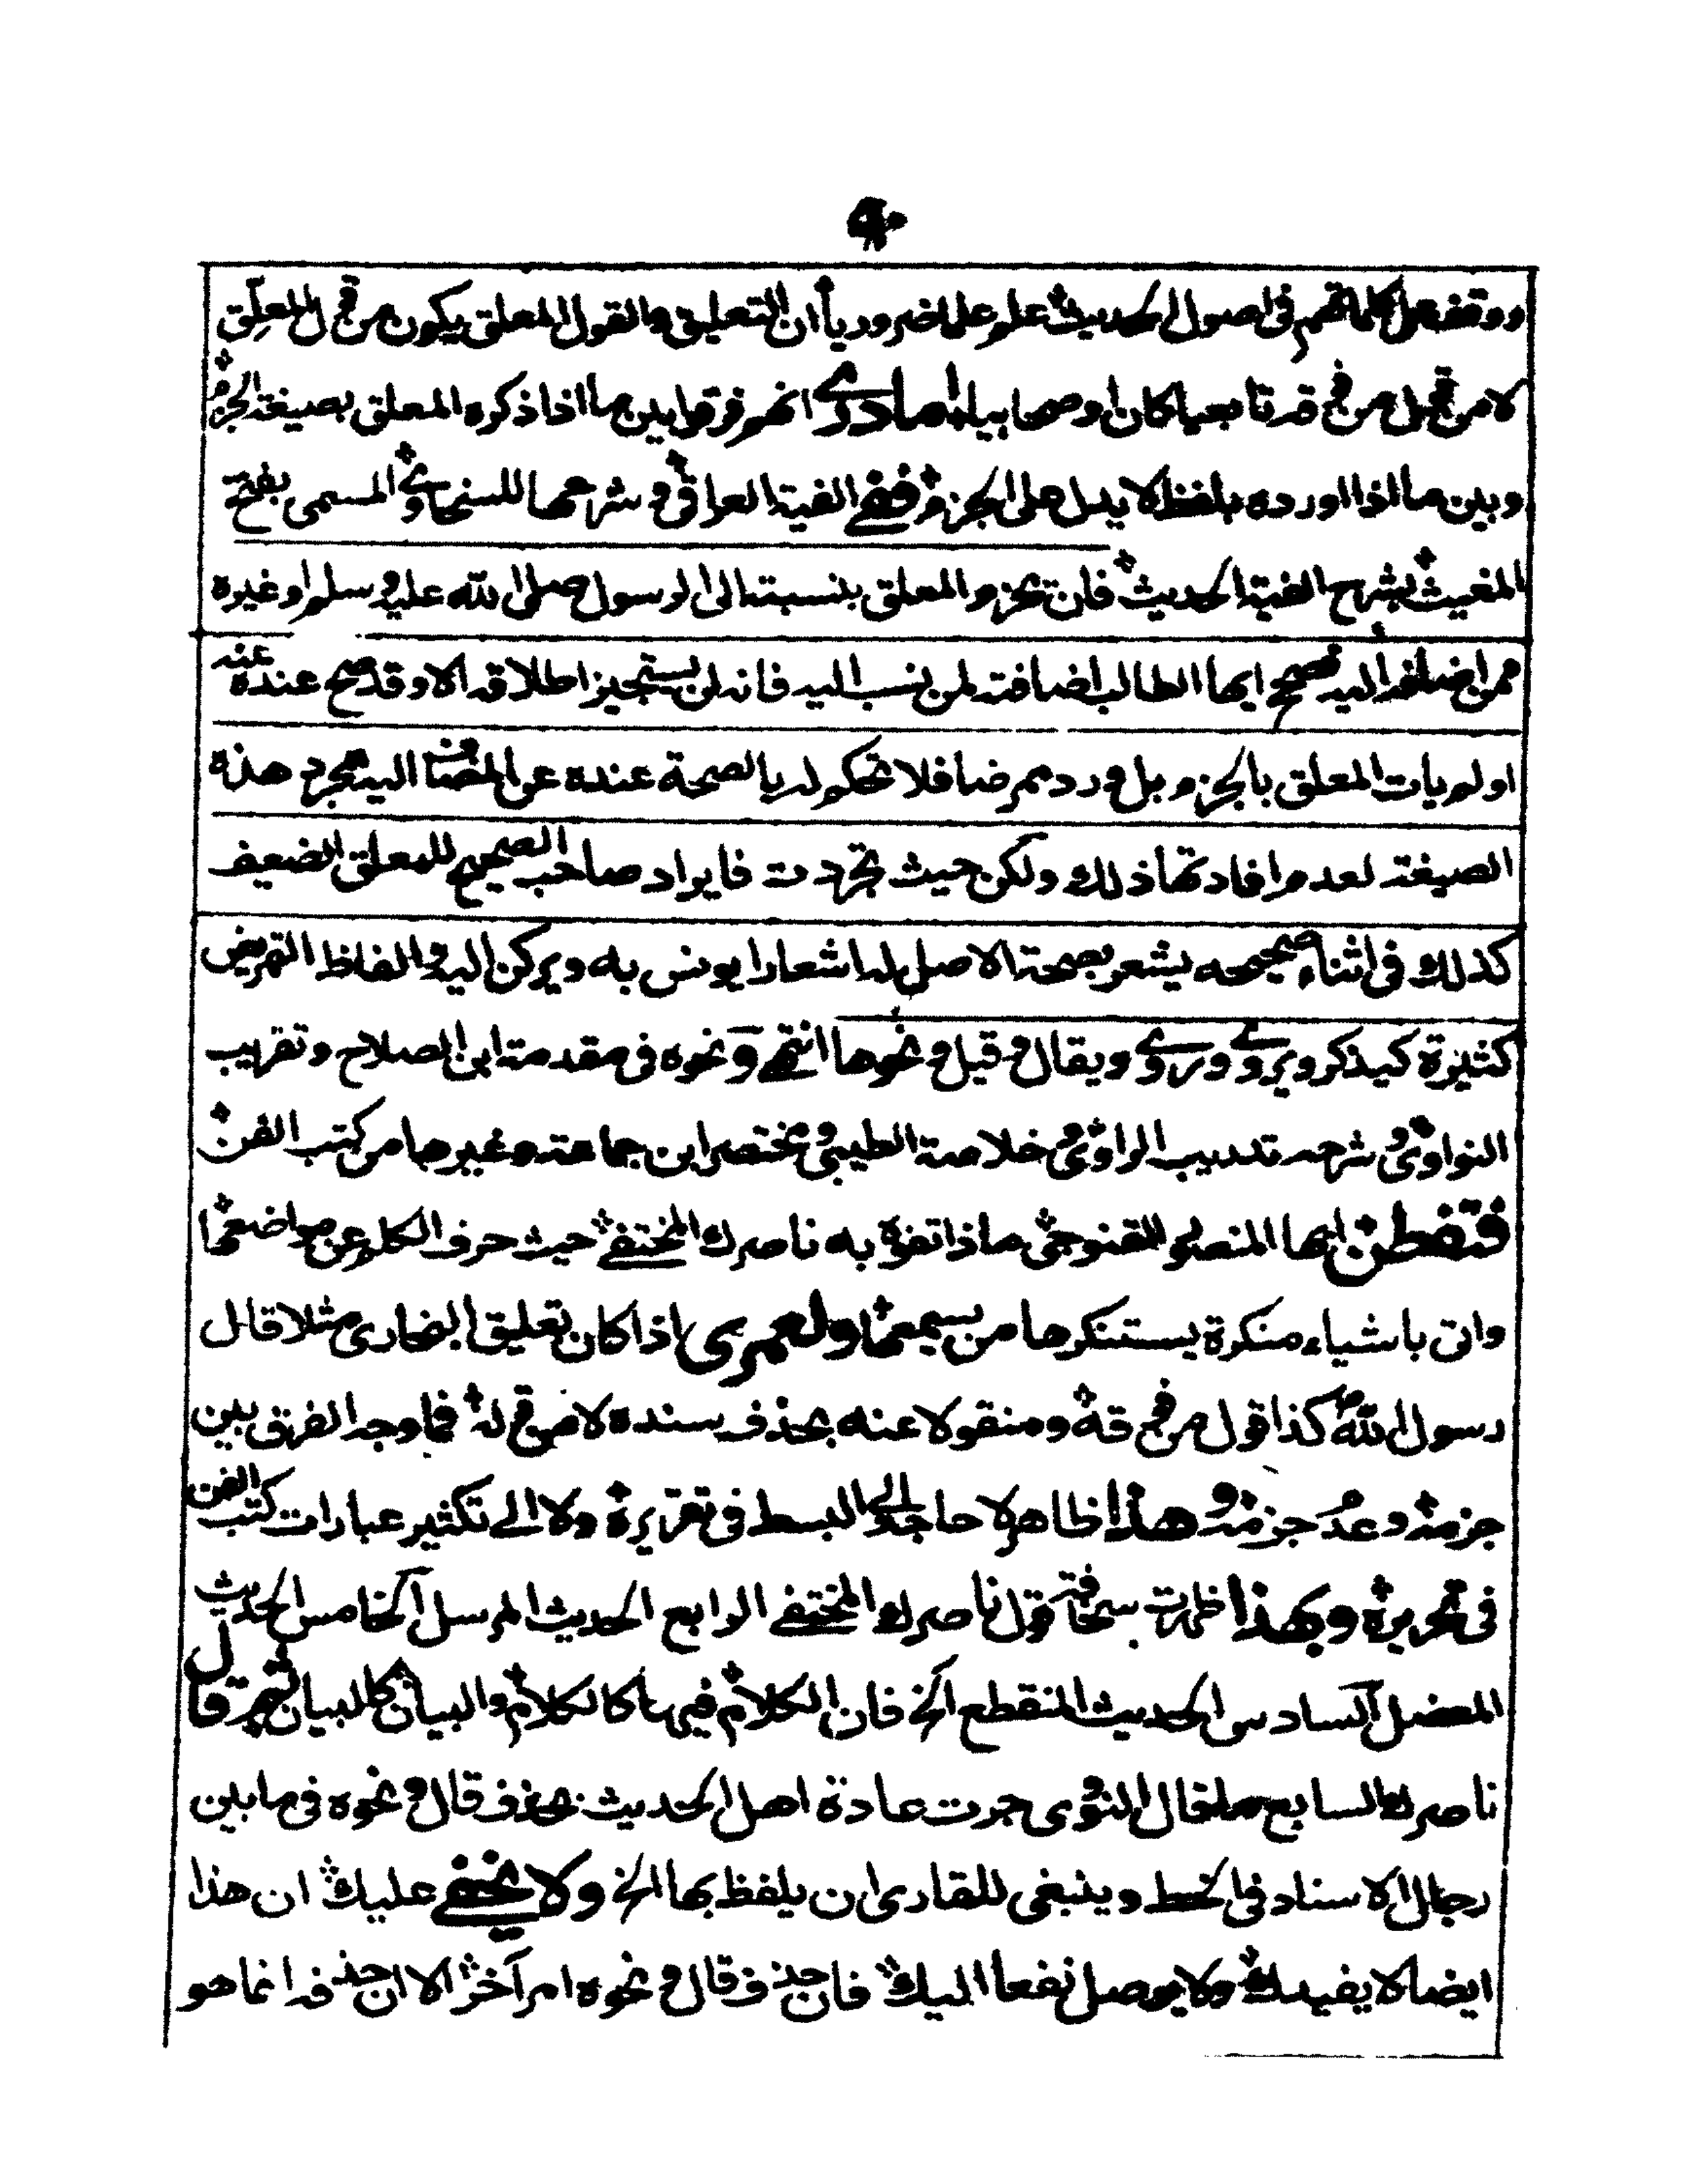 ووقف على كلماتهم في اصول الحديث علم علما ضروريا أن التعليق والقول المعلق يكون من قول المعلق
لا من قول من فوقه تابعيا كان او صحابيا اما درى انهم فرقوا بين ما اذا ذكره المعلق بصيغة الجزم
وبين ما اذا اورده بلفظ لا يدل على الجزم ففي الفية العراقي وشرحها للسخاوي المسمى بفتح
المغيث بشرح الفية الحديث فان تجزم المعلق بنسبته الى الرسول صلى الله عليه وسلم او غيره
ممن اضافه اليه فصحح ايها الطالب اضافته لمن نسب اليه فانه لن يستجيز اطلاقه الا وقد صح عنده عنه
او لم يات المعلق بالجزم بل ورد ممرضا فلا تحكم له بالصحة عنده عن المضاف اليه بمجرد هذه
الصيغة لعدم افادتها ذلك ولكن حيث تجردت فايراد صاحب الصحيح للمعلق الضعيف
كذلك في اثناء صحيحه يشعر بصحة الاصل له اشعارا يونس به ويركن اليه والفاظ التمريض
كثيرة كيذكر ويروى وروى ويقال وقيل ونحوها انتهى ونحوه في مقدمة ابن الصلاح وتقريب
النواوى وشرحه تدريب الراوى وخلاصة الطيبى ومختصر ابن جماعة وغيرها من كتب الفن
فتفطن ايها المنصور القنوجى ماذا تفوه به ناصرك المختفى حيث حرف الكلم عن مواضعها
واتى باشياء منكرة يستنكرها من يسمعها ولعمرى اذا كان تعليق البخارى مثلا قال
رسول الله ص كذا قول من فوقه ومنقولا عنه بحذف سنده لا من قوله فما وجه الفرق بين
جزمه وعدم جزمه وهذا ظاهر لا حاجة الى البسط في تقريره ولا الى تكثير عبارات كتب الفن
في تحريره وبهذا ظهرت سخافة قول ناصرك المختفى الرابع الحديث المرسل الخامس الحديث
المعضل السادس الحديث المنقطع الخ فان الكلام فيها كالكلام والبيان كالبيان ثم قال
ناصرك السابع ما قال النووى جرت عادة اهل الحديث بحذف قال ونحوه في ما بين
رجال الاسناد في الخط وينبغى للقارى ان يلفظ بها الخ ولا يخفى عليك ان هذا
ايضا لا يفيدك ولا يوصل نفعا اليك فان حذف قال ونحوه امر آخر الا ان حذفه انما هو